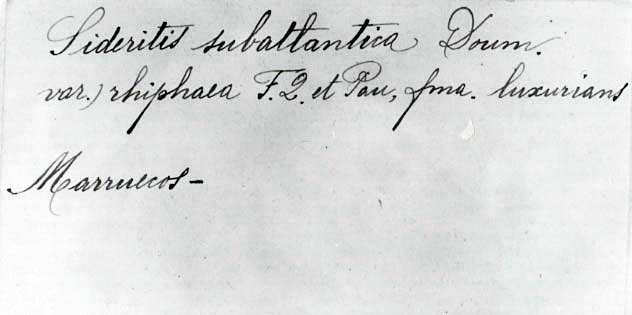 Sideritis subatlantica Doum.
var.) rhiphaea F.Q. et Pau, fma. luxurians
Marruecos-